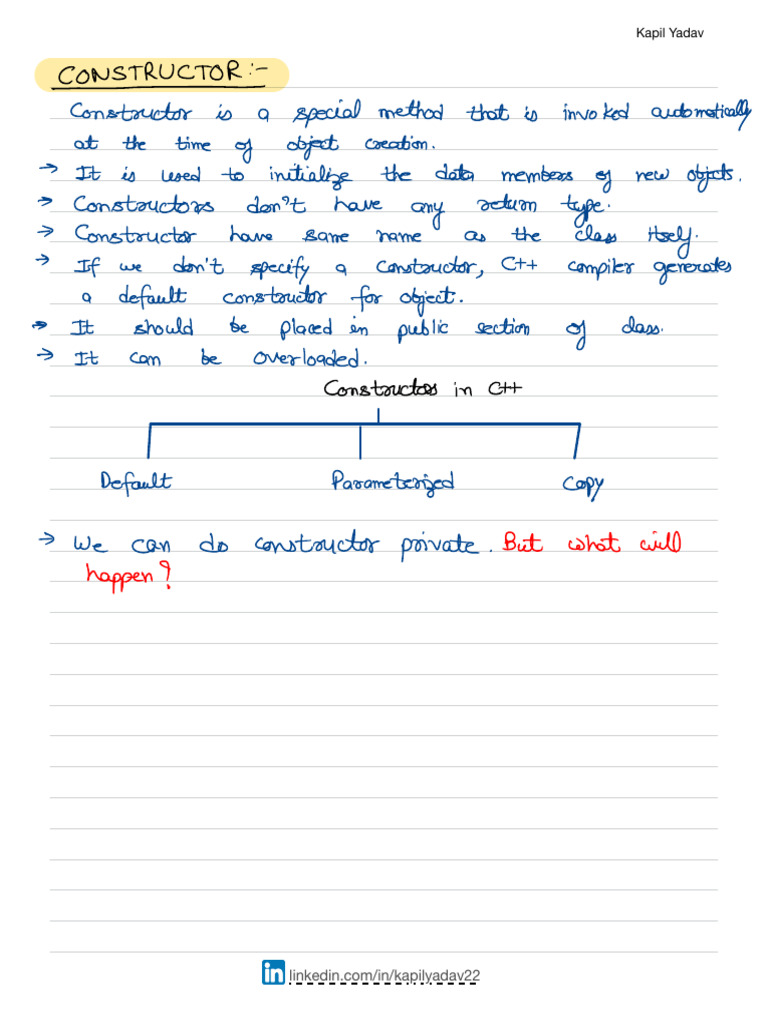 Kapil Yadav
CONSTRUCTOR:-
Constructor is a special method that is invoked automatically
at the time of object creation.
→ It is used to initialize the data members of new objects.
→ Constructors don't have any return type.
→ Constructor have same name as the class itself.
→ If we don't specify a constructor, C++ compiler generates
a default constructor for object.
→ It should be placed in public section of class.
→ It can be overloaded.
Constructors in C++
Default Parameterized Copy
→ We can do constructor private. But what will
happen?
in linkedin.com/in/kapilyadav22